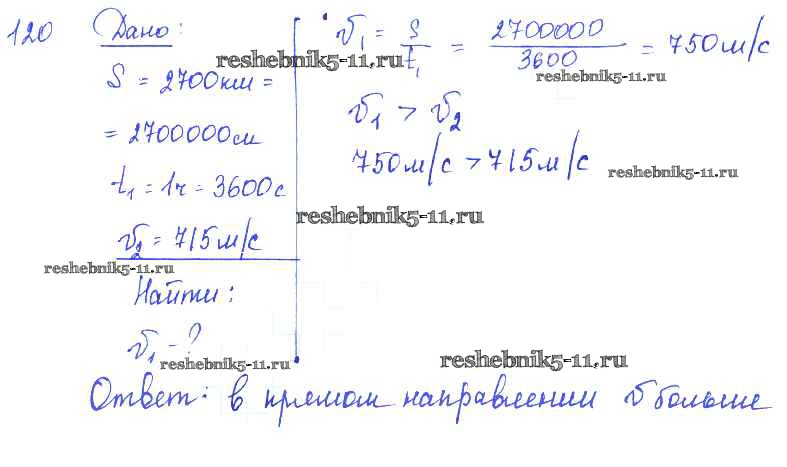 120 Дано:
S = 2700км =
= 2700000м
t₁ = 1ч = 3600с
v₂ = 715м/с
Найти:
v₁ - ?
v₁ = S/t₁ = 2700000/3600 = 750м/с
v₁ > v₂
750м/с > 715м/с
Ответ: в прямом направлении v больше
reshebnik5-11.ru
reshebnik5-11.ru
reshebnik5-11.ru
reshebnik5-11.ru
reshebnik5-11.ru
reshebnik5-11.ru
reshebnik5-11.ru